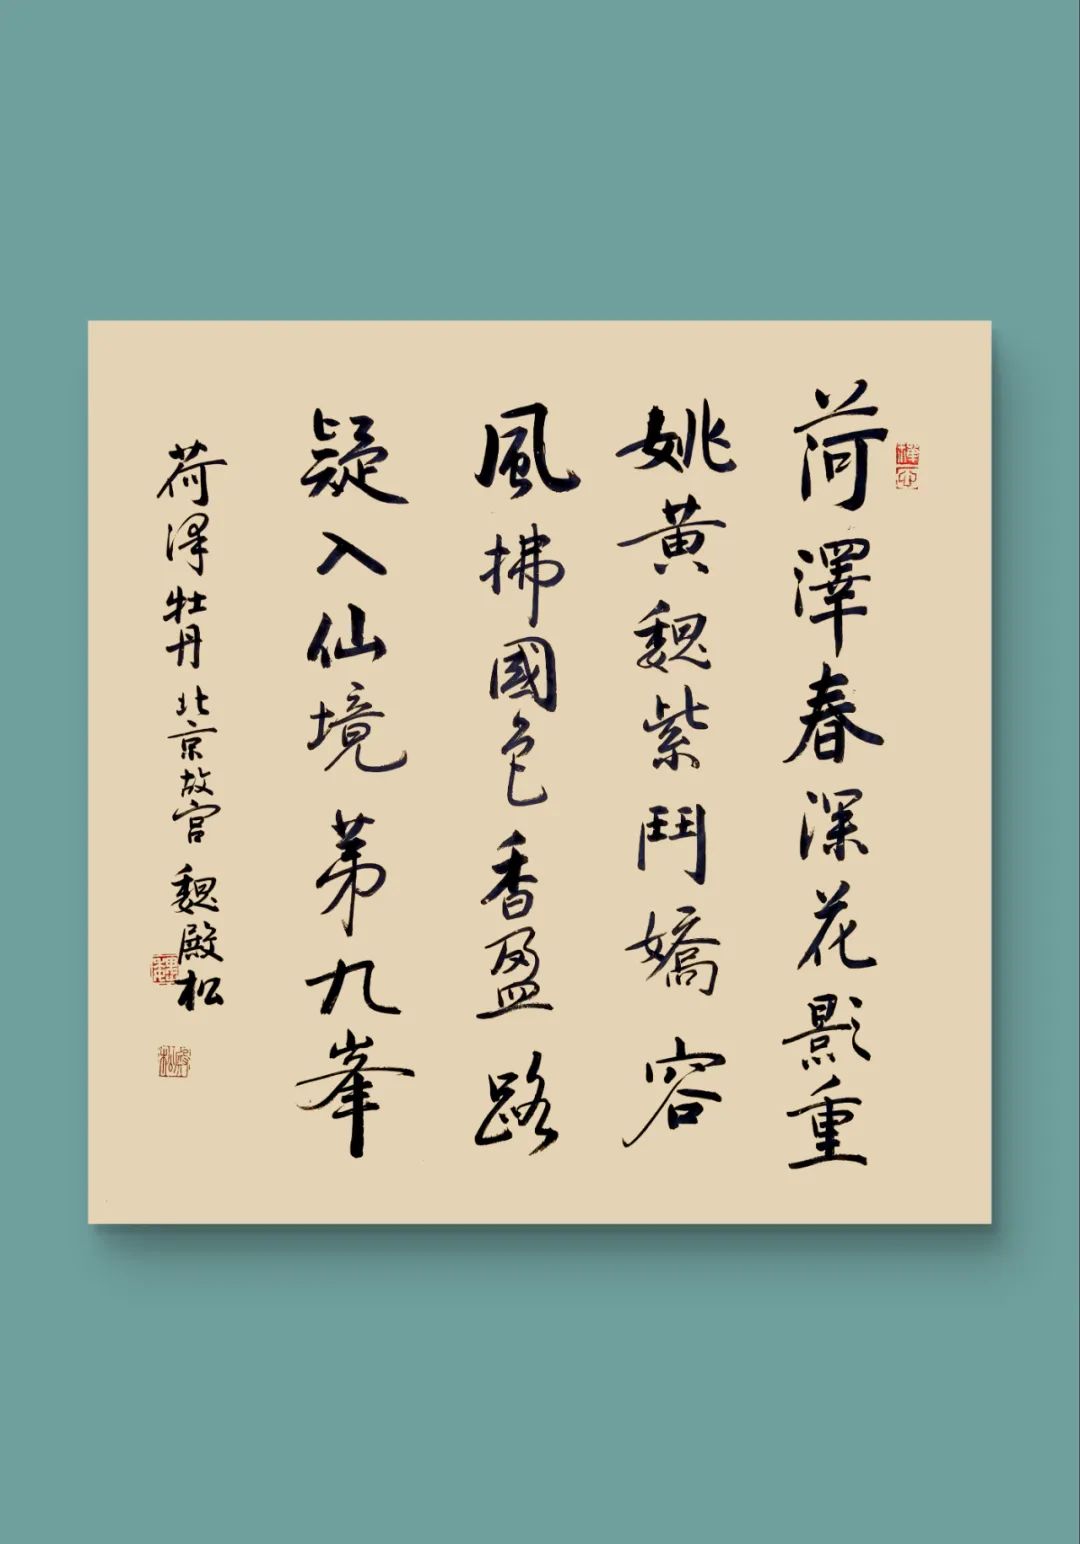 荷澤春深花影重
姚黄魏紫鬥嬌容
風拂國色香盈路
疑入仙境第九峯
荷泽牡丹 北京故宫 魏殿松